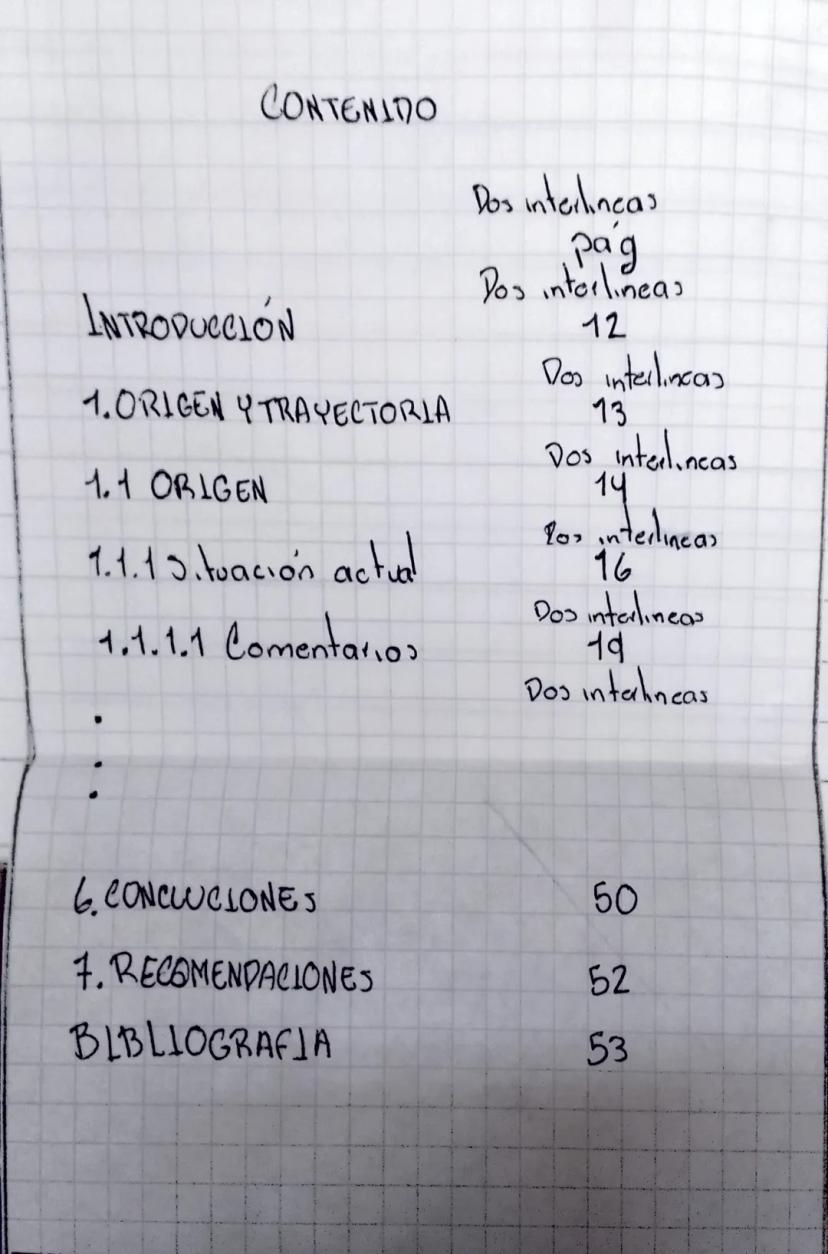 CONTENIDO
Dos interlineas
pág
Dos interlineas
INTRODUCCIÓN 12
Dos interlineas
1. ORIGEN Y TRAYECTORIA 13
Dos interlineas
1.1 ORIGEN 14
Dos interlineas
1.1.1 Situación actual 16
Dos interlineas
1.1.1.1 Comentarios 19
Dos interlineas
.
.
.
6. CONCLUCIONES 50
7. RECOMENDACIONES 52
BIBLIOGRAFIA 53